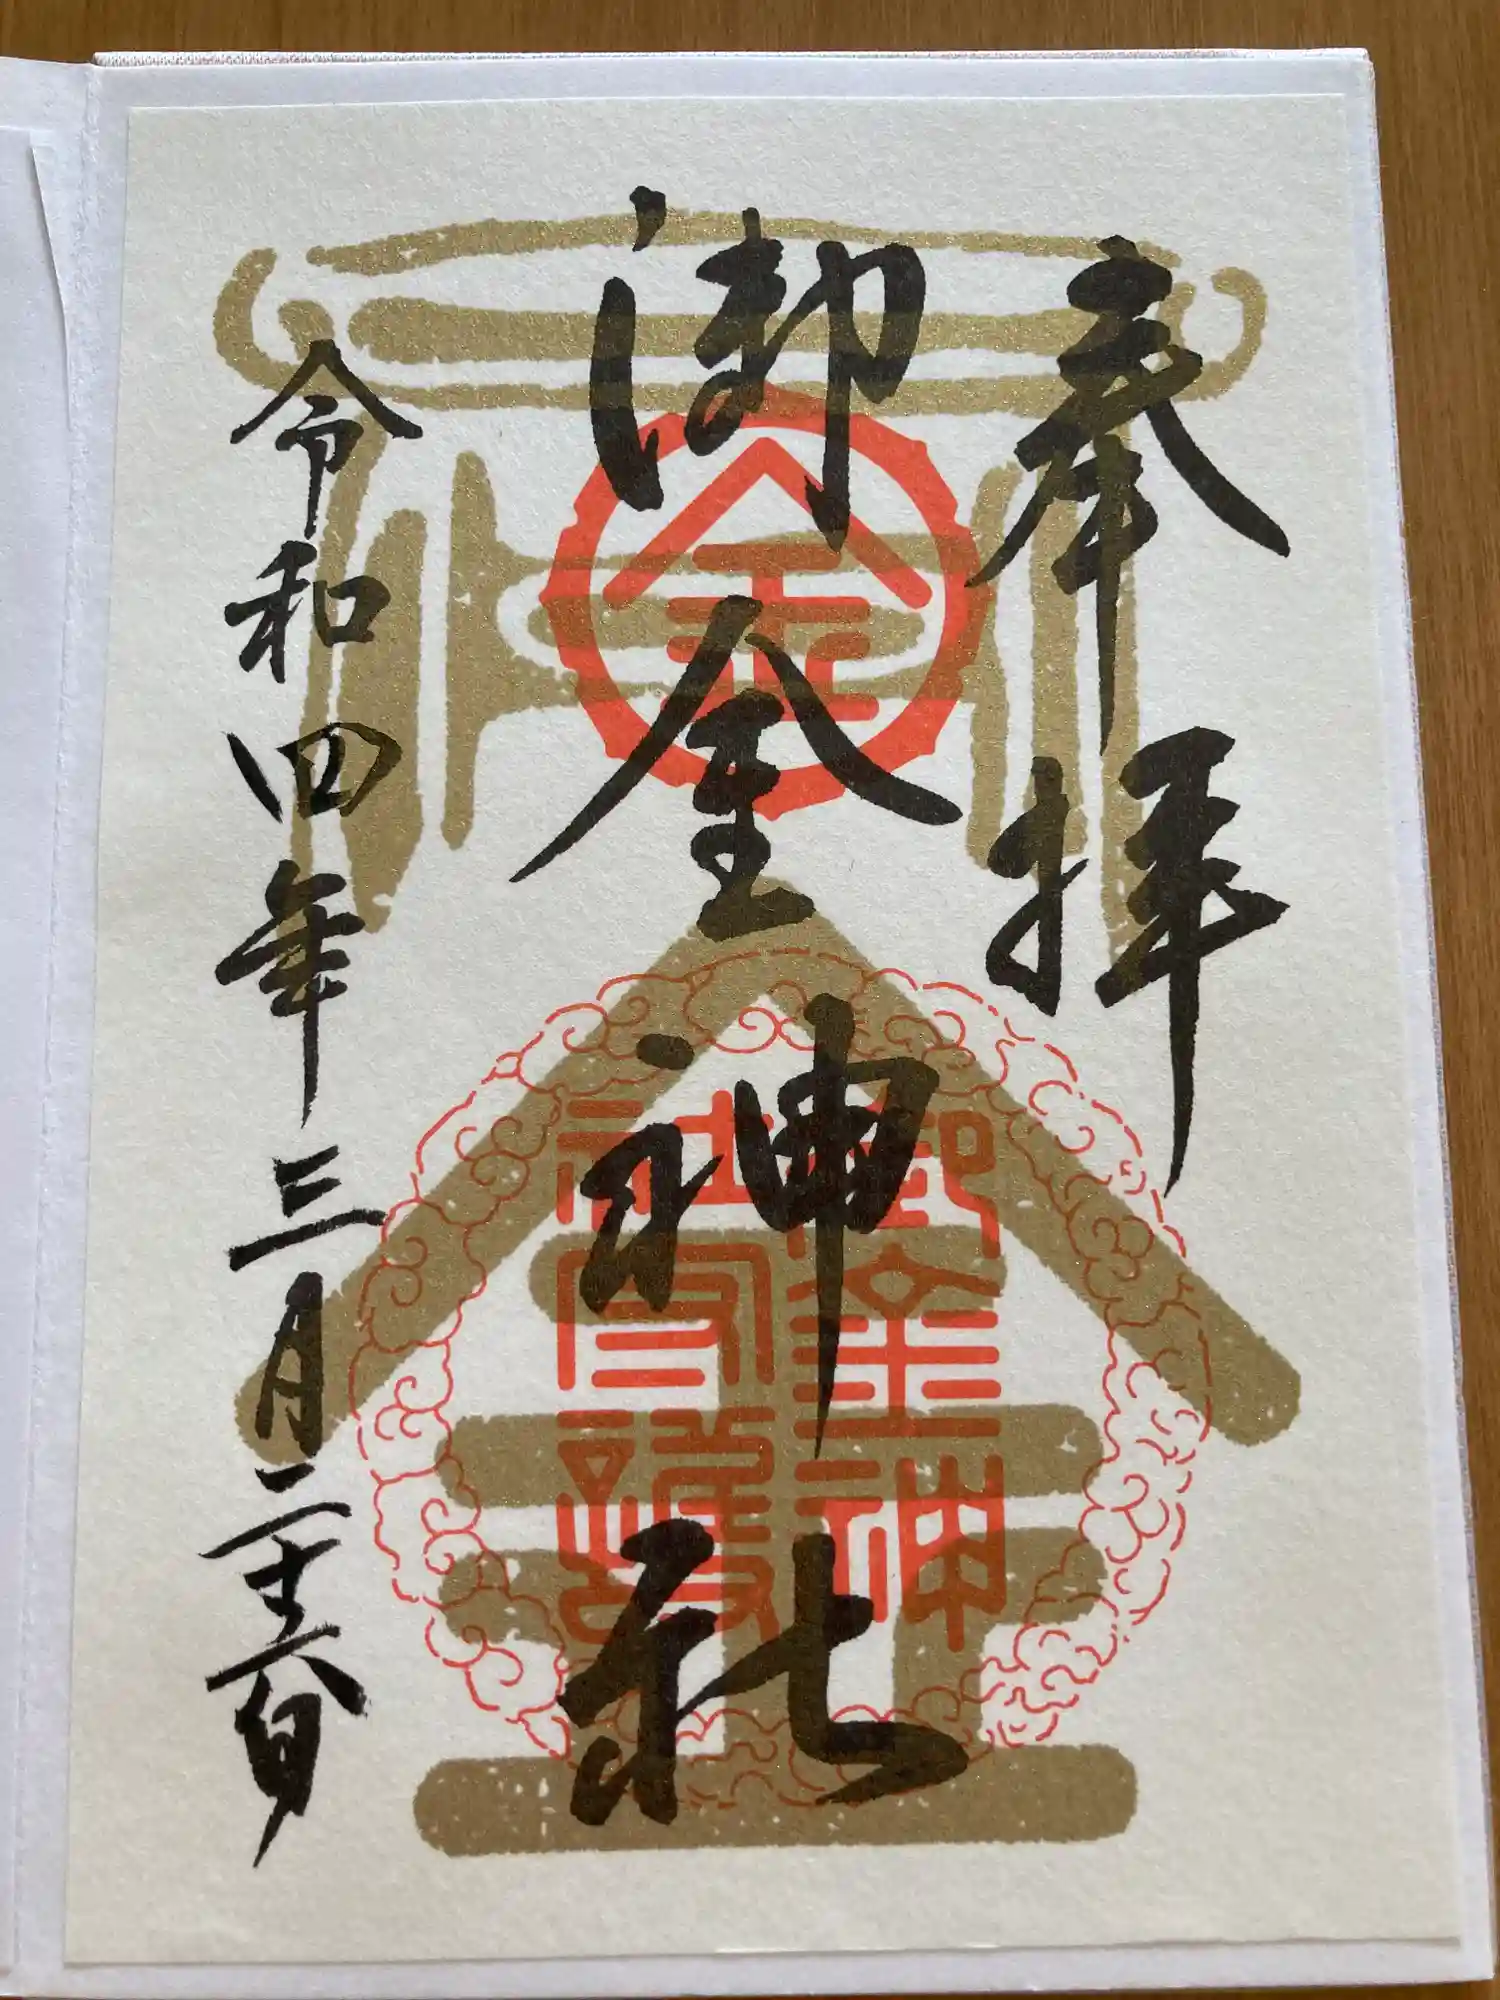 奉拝
御金神社
令和四年三月二十六日
金
御金神
社守護